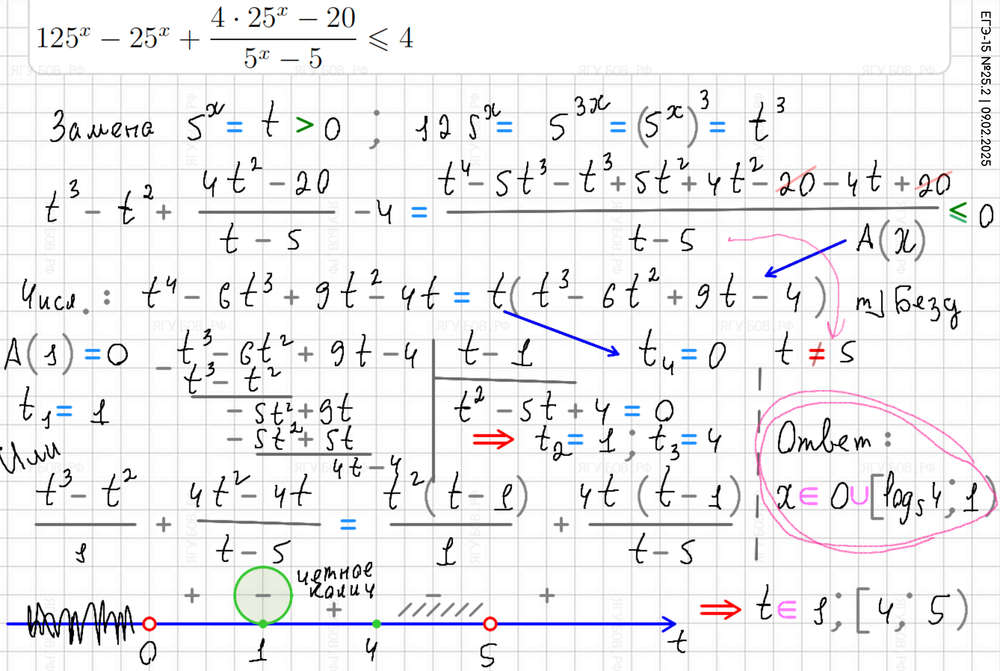 125ˣ − 25ˣ + (4 · 25ˣ − 20)/(5ˣ − 5) ⩽ 4
ЕГЭ-15 №25.2 | 09.02.2025
Замена 5ˣ = t > 0 ; 125ˣ = 5³ˣ = (5ˣ)³ = t³
t³ − t² + (4t² − 20)/(t − 5) − 4 = (t⁴ − 5t³ − t³ + 5t² + 4t² − 20 − 4t + 20)/(t − 5) ≤ 0
A(x)
Числ.: t⁴ − 6t³ + 9t² − 4t = t(t³ − 6t² + 9t − 4) т) Безу
A(1) = 0 − t³ − 6t² + 9t − 4 | t − 1 t₄ = 0 t ≠ 5
t³ − t²
t₁ = 1 − 5t² + 9t t² − 5t + 4 = 0
− 5t² + 5t ⇒ t₂ = 1 ; t₃ = 4
4t − 4
Или
(t³ − t²)/1 + (4t² − 4t)/(t − 5) = t²(t − 1)/1 + 4t(t − 1)/(t − 5)
Ответ :
x ∈ 0 ∪ [log₅4 ; 1)
четное
колич
+ − + − +
0 1 4 5 t
⇒ t ∈ 1 ; [4 ; 5)